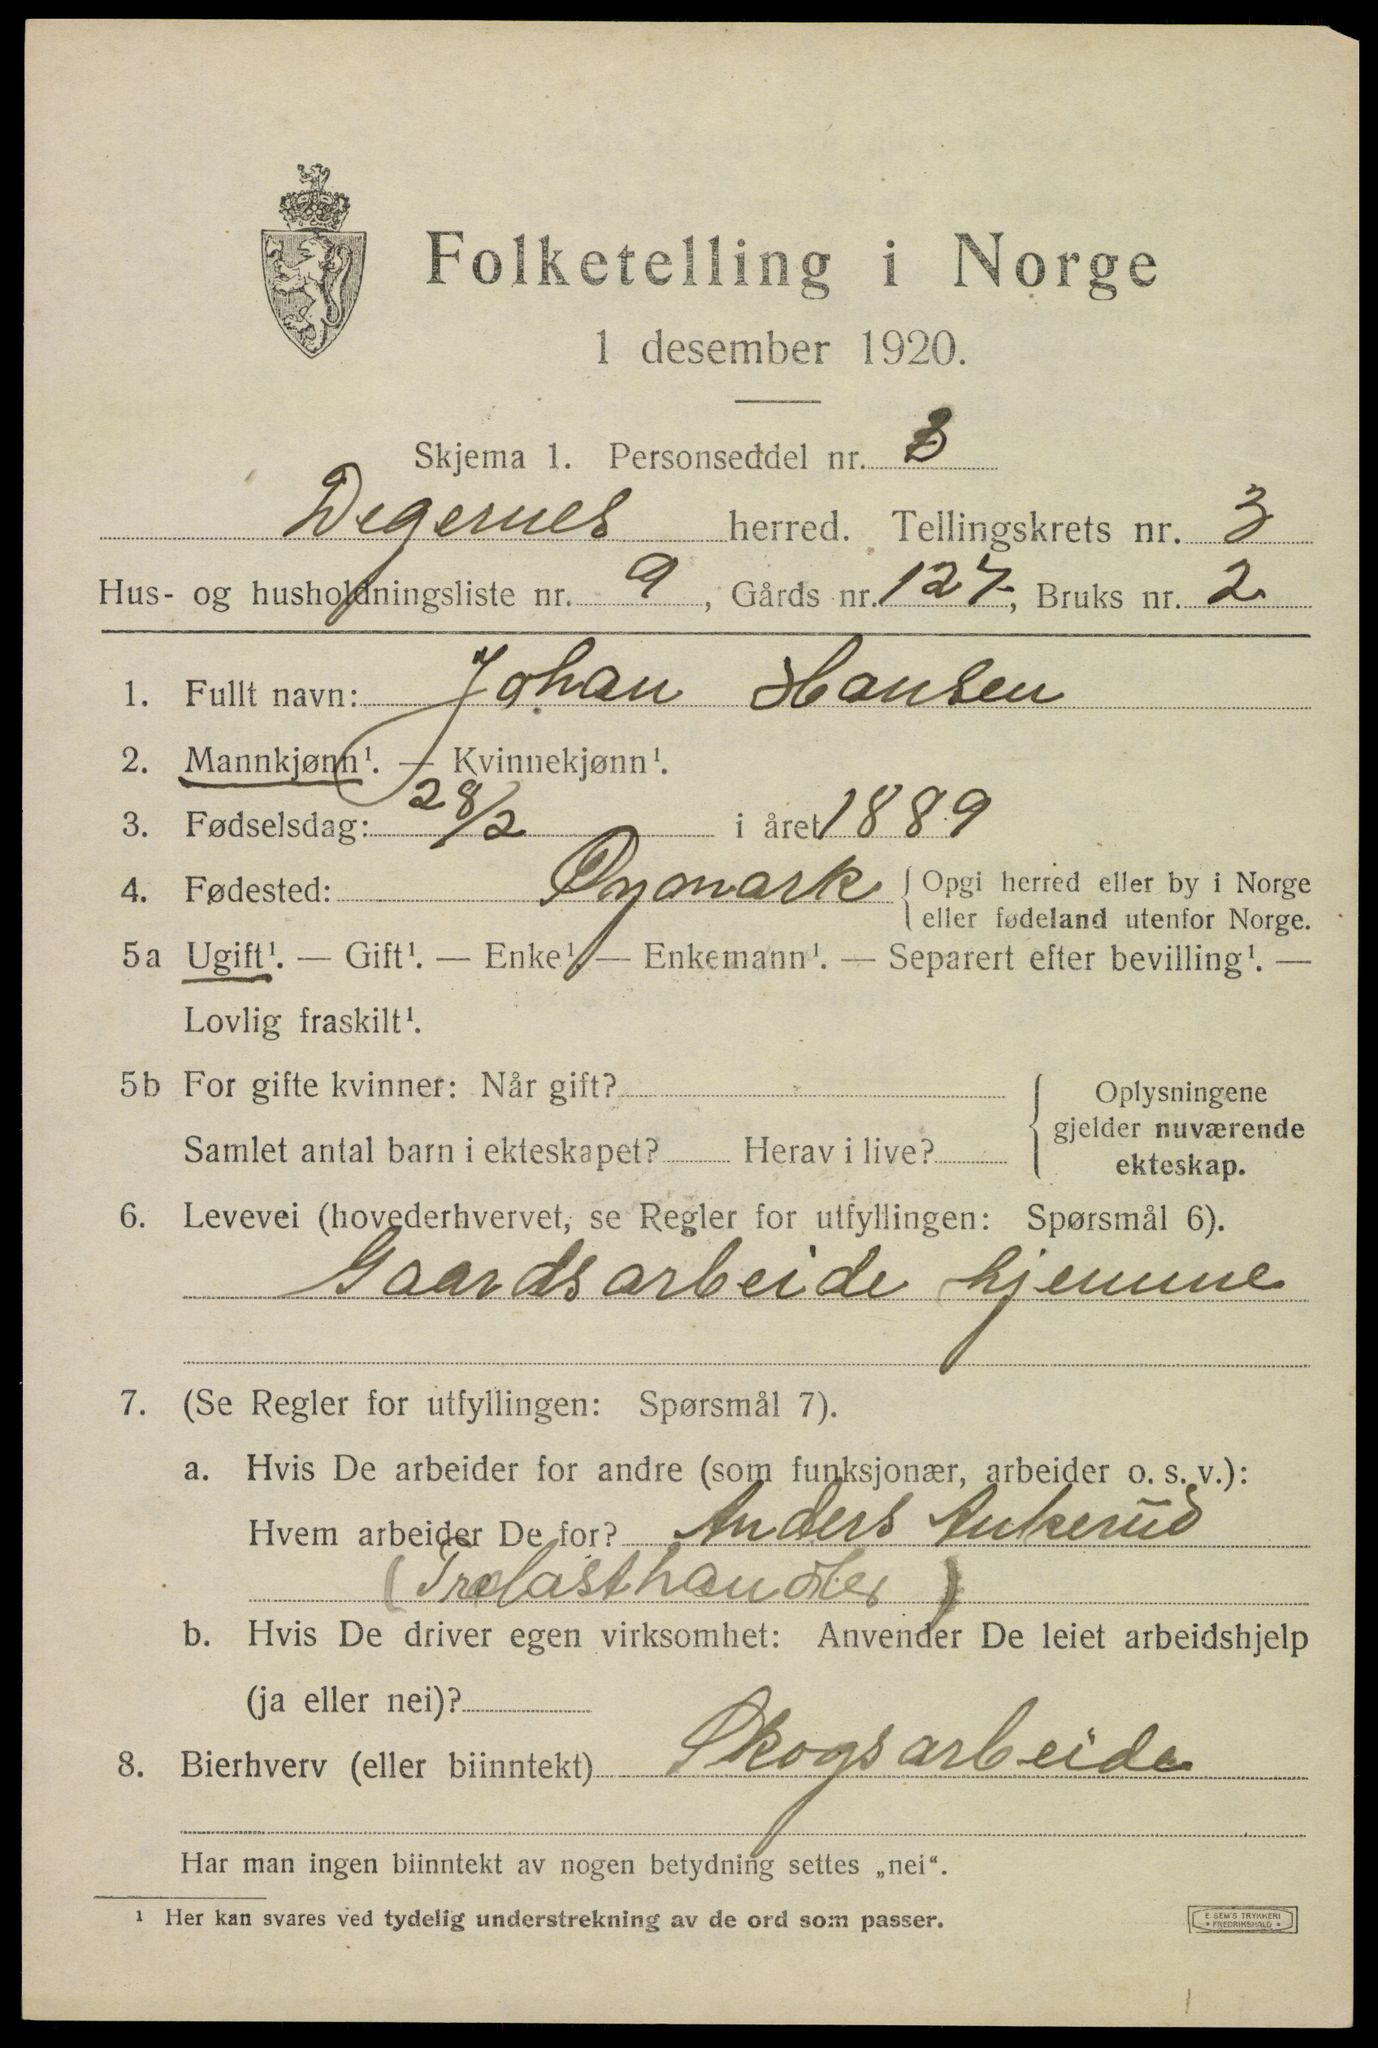 Folketelling i Norge
1 desember 1920.
Skjema 1. Personseddel nr. 3
Degernes herred. Tellingskrets nr. 3
Hus- og husholdningsliste nr. 9, Gårds nr. 127, Bruks nr. 2
1. Fullt navn: Johan Hansen
2. Mannkjønn¹. — Kvinnekjønn¹.
3. Fødselsdag: 28/2 i året 1889
4. Fødested: Øymark { Opgi herred eller by i Norge
eller fødeland utenfor Norge.
5a Ugift¹. — Gift¹. — Enke¹. — Enkemann¹. — Separert efter bevilling¹. —
Lovlig fraskilt¹.
5b For gifte kvinner: Når gift?
Samlet antal barn i ekteskapet? Herav i live?
{ Oplysningene
gjelder nuværende
ekteskap.
6. Levevei (hovederhvervet, se Regler for utfyllingen: Spørsmål 6).
Gaardsarbeide hjemme
7. (Se Regler for utfyllingen: Spørsmål 7).
a. Hvis De arbeider for andre (som funksjonær, arbeider o. s. v.):
Hvem arbeider De for? Anders Ankerud
(Trælasthandler)
b. Hvis De driver egen virksomhet: Anvender De leiet arbeidshjelp
(ja eller nei)?
8. Bierhverv (eller biinntekt) Skogsarbeide
Har man ingen biinntekt av nogen betydning settes „nei“.
¹ Her kan svares ved tydelig understrekning av de ord som passer.
E. SEM'S TRYKKERI
• FREDRIKSHALD •